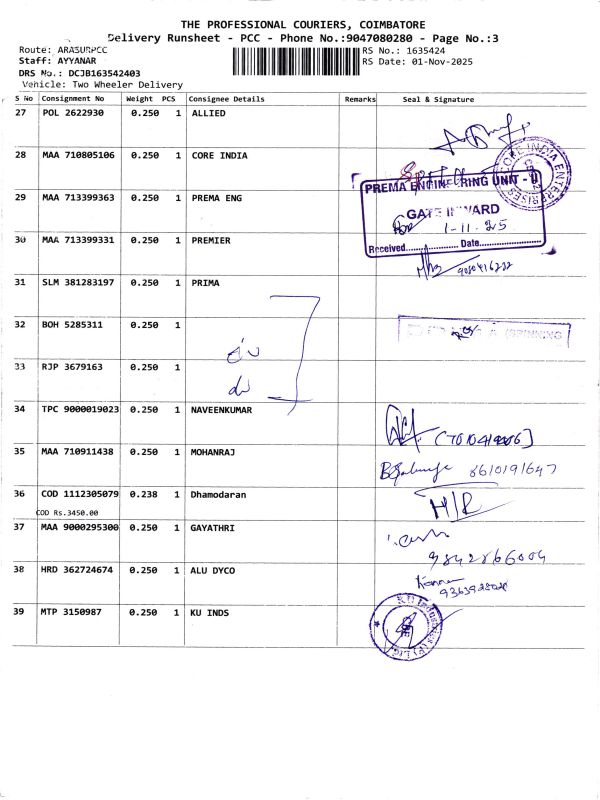 THE PROFESSIONAL COURIERS, COIMBATORE
Delivery Runsheet - PCC - Phone No.:9047080280 - Page No.:3
Route: ARASURPCC RS No.: 1635424
Staff: AYYANAR RS Date: 01-Nov-2025
DRS No.: DCJB163542403
Vehicle: Two Wheeler Delivery
S No Consignment No Weight PCS Consignee Details Remarks Seal & Signature
27 POL 2622930 0.250 1 ALLIED
28 MAA 710805106 0.250 1 CORE INDIA
CORE INDIA ENTERPRISES
29 MAA 713399363 0.250 1 PREMA ENG
PREMA ENGINEERING UNIT - II
GATE INWARD
1-11-25
Received................ Date................
30 MAA 713399331 0.250 1 PREMIER
31 SLM 381283197 0.250 1 PRIMA
32 BOH 5285311 0.250 1
33 RJP 3679163 0.250 1
34 TPC 9000019023 0.250 1 NAVEENKUMAR
35 MAA 710911438 0.250 1 MOHANRAJ
8610191647
36 COD 1112305079 0.238 1 Dhamodaran
COD Rs.3450.00
H/R
37 MAA 9000295300 0.250 1 GAYATHRI
9842866004
38 HRD 362724674 0.250 1 ALU DYCO
39 MTP 3150987 0.250 1 KU INDS